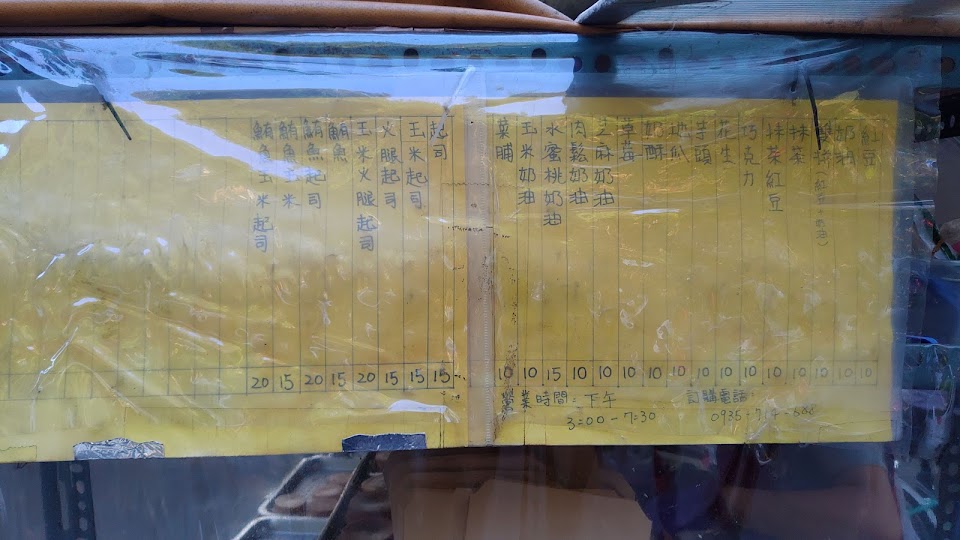 紅豆 10
奶油 10
雙拼(紅豆+奶油) 10
抹茶 10
抹茶紅豆 10
巧克力 10
花生 10
芋頭 10
地瓜 10
奶酥 10
草莓 10
芝麻奶油 10
肉鬆奶油 10
水蜜桃奶油 15
玉米奶油 10
菓脯 10
起司 15
玉米起司 15
火腿起司 15
玉米火腿起司 20
鮪魚 15
鮪魚起司 20
鮪魚玉米 15
鮪魚玉米起司 20
訂購電話:
營業時間:下午
3:00-7:30